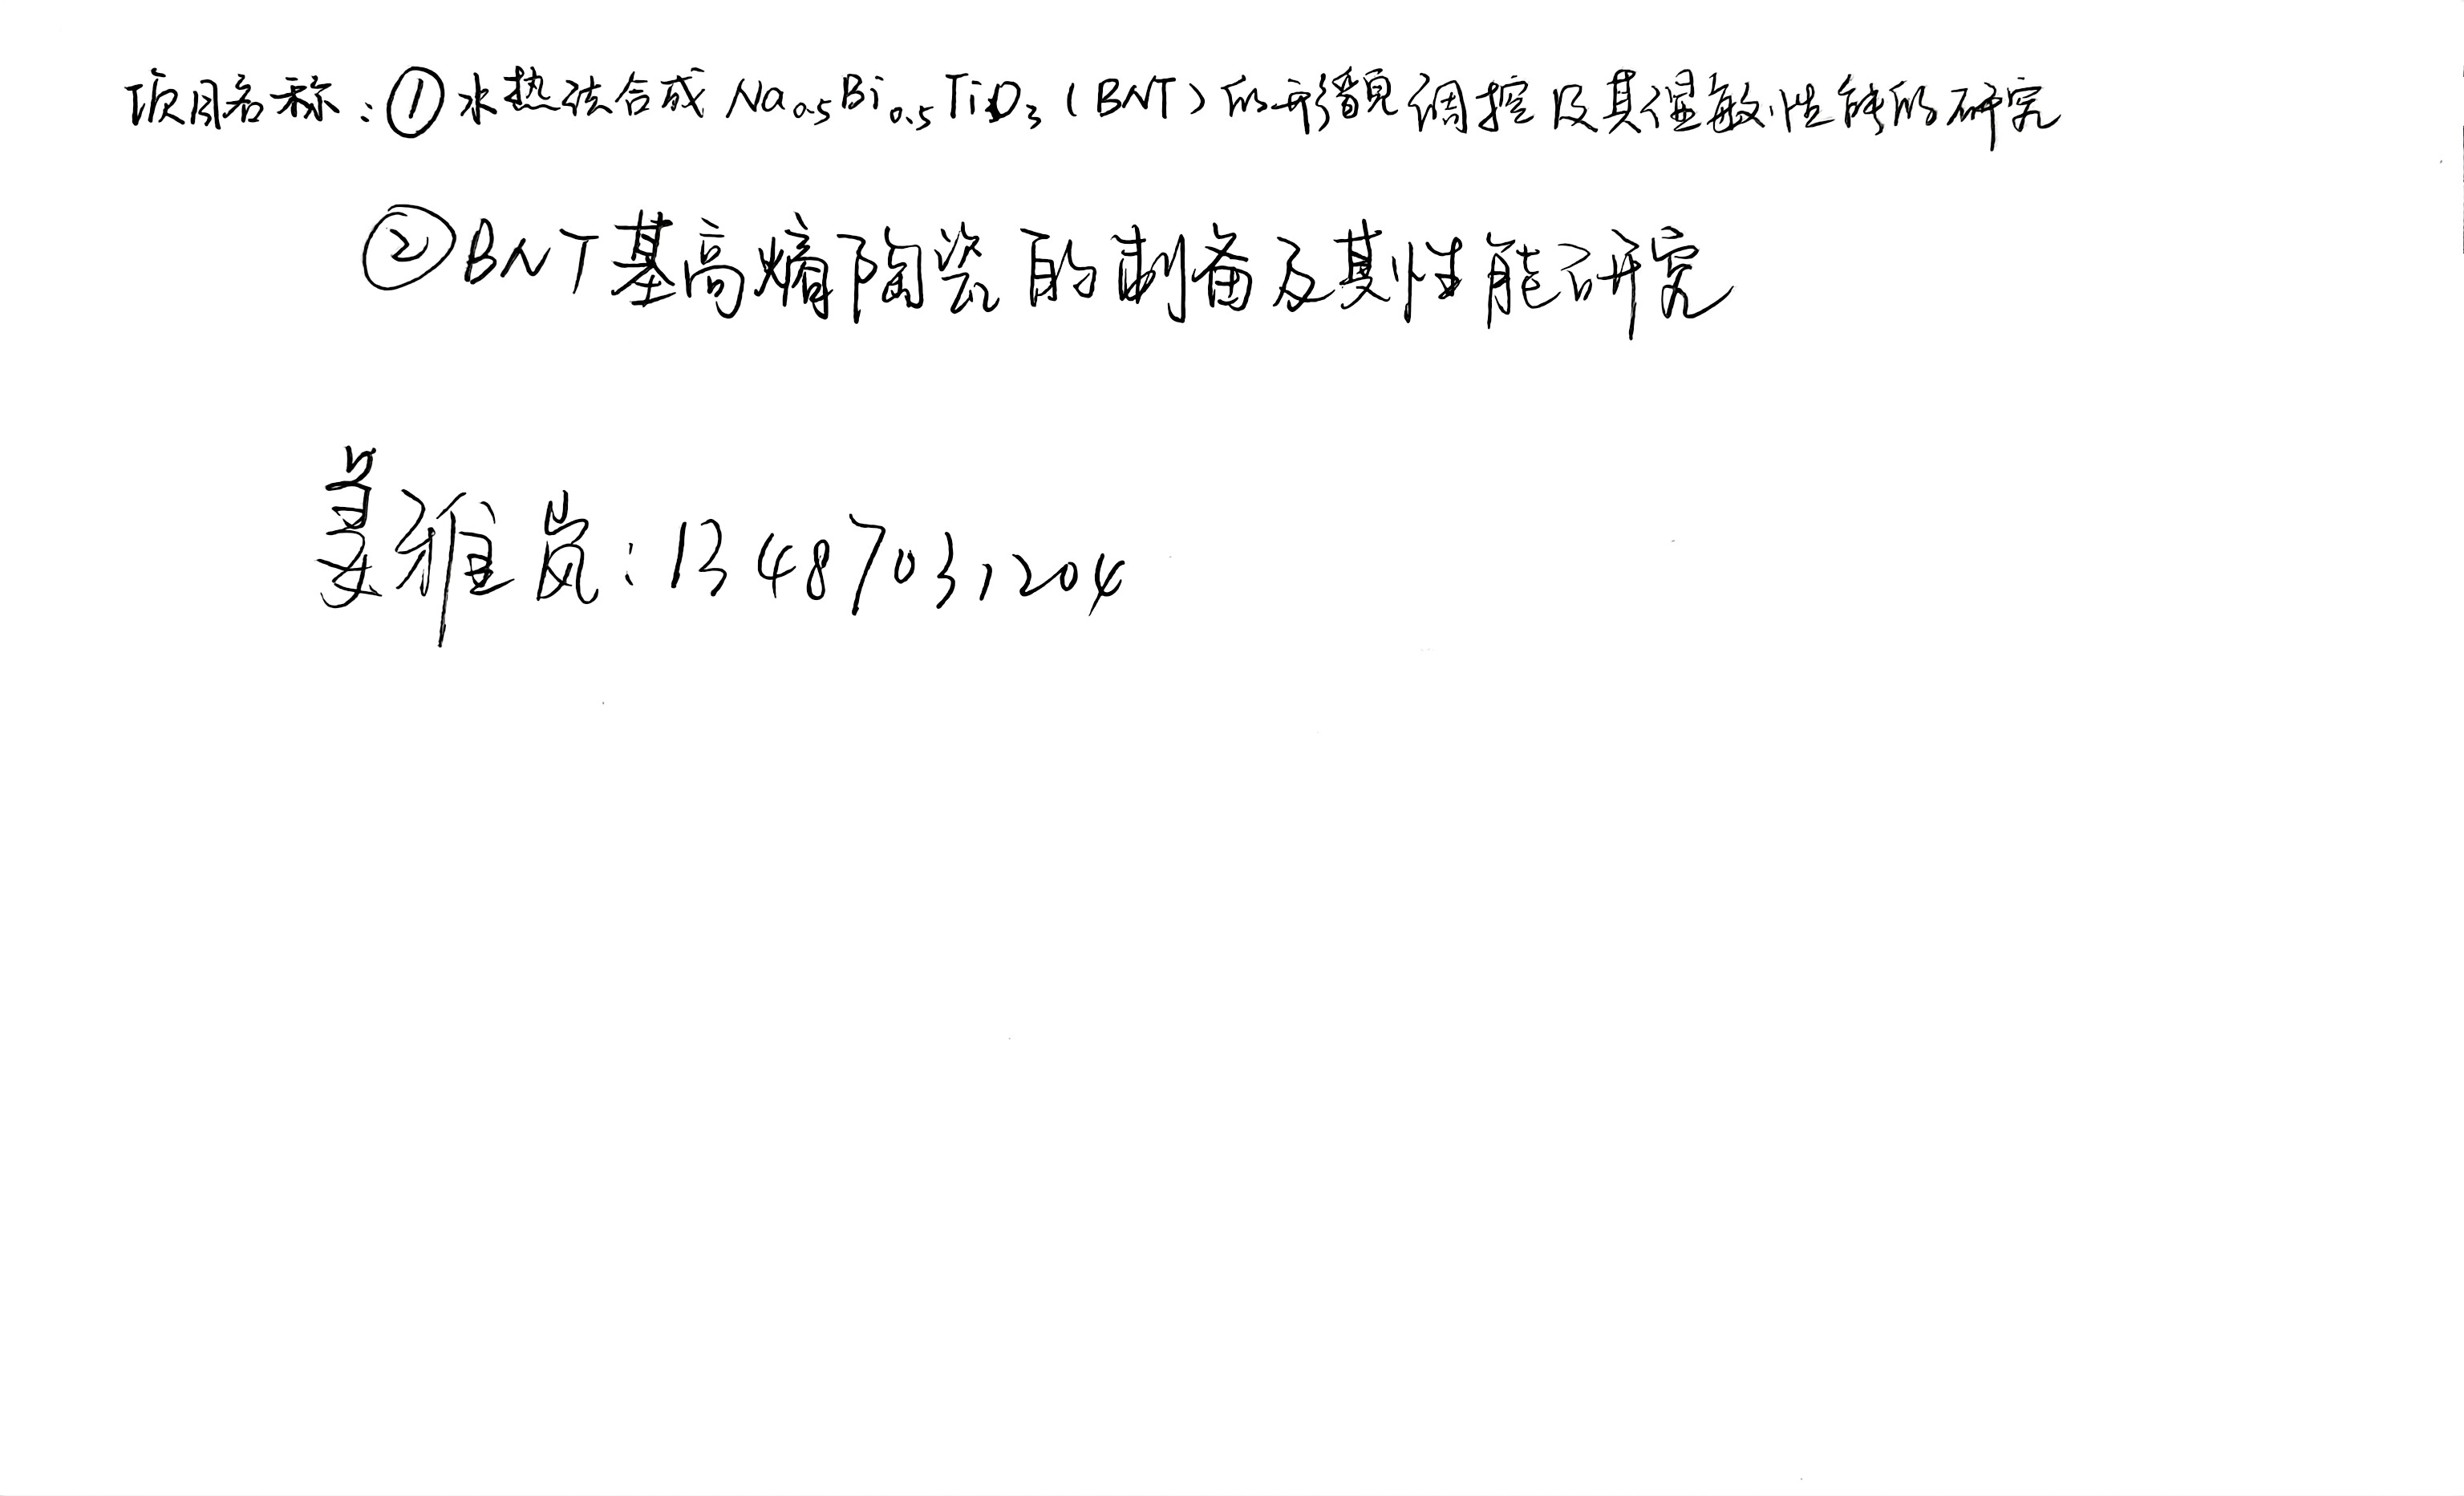 项目名称：①水热法合成Na0.5Bi0.5TiO3（BNT）的形貌调控及其湿敏性能的研究
②BNT基高熵陶瓷的制备及其性能研究
姜雅岚：13487031204